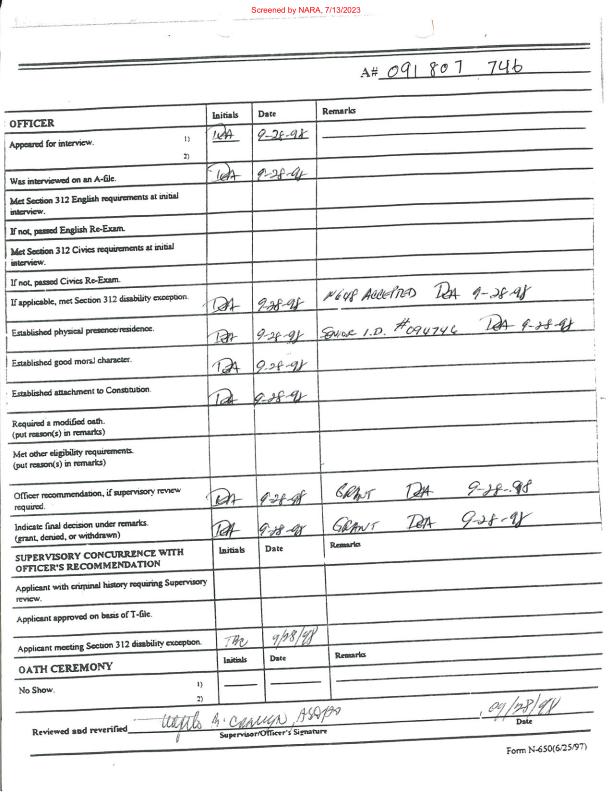 Screened by NARA, 7/13/2023
A# 091 807 746
OFFICER Initials Date Remarks
Appeared for interview. 1) DA 9-28-98
2)
Was interviewed on an A-file. DA 9-28-98
Met Section 312 English requirements at initial
interview.
If not, passed English Re-Exam.
Met Section 312 Civics requirements at initial
interview.
If not, passed Civics Re-Exam.
If applicable, met Section 312 disability exception. DA 9-28-98 N648 ACCEPTED DA 9-28-98
Established physical presence/residence. DA 9-28-98 SENIOR I.D. #094746 DA 9-28-98
Established good moral character. DA 9-28-98
Established attachment to Constitution. DA 9-28-98
Required a modified oath.
(put reason(s) in remarks)
Met other eligibility requirements.
(put reason(s) in remarks)
Officer recommendation, if supervisory review
required. DA 9-28-98 GRANT DA 9-28-98
Indicate final decision under remarks.
(grant, denied, or withdrawn) DA 9-28-98 GRANT DA 9-28-98
SUPERVISORY CONCURRENCE WITH
OFFICER'S RECOMMENDATION Initials Date Remarks
Applicant with criminal history requiring Supervisory
review.
Applicant approved on basis of T-file.
Applicant meeting Section 312 disability exception. 9/28/98
OATH CEREMONY Initials Date Remarks
No Show. 1)
2)
Reviewed and reverified 09/28/98
Supervisor/Officer's Signature Date
Form N-650(6/25/97)